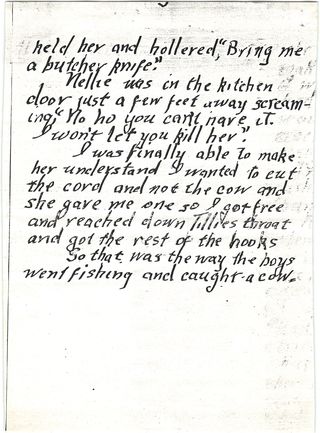 held her and hollered, "Bring me
a butcher knife."
Nellie was in the kitchen
door just a few feet away scream-
ing, "No no you cant have it.
I won't let you kill her".
I was finally able to make
her understand I wanted to cut
the cord and not the cow and
she gave me one so I got free
and reached down Tillies throat
and got the rest of the hooks
So that was the way the boys
went fishing and caught a cow.